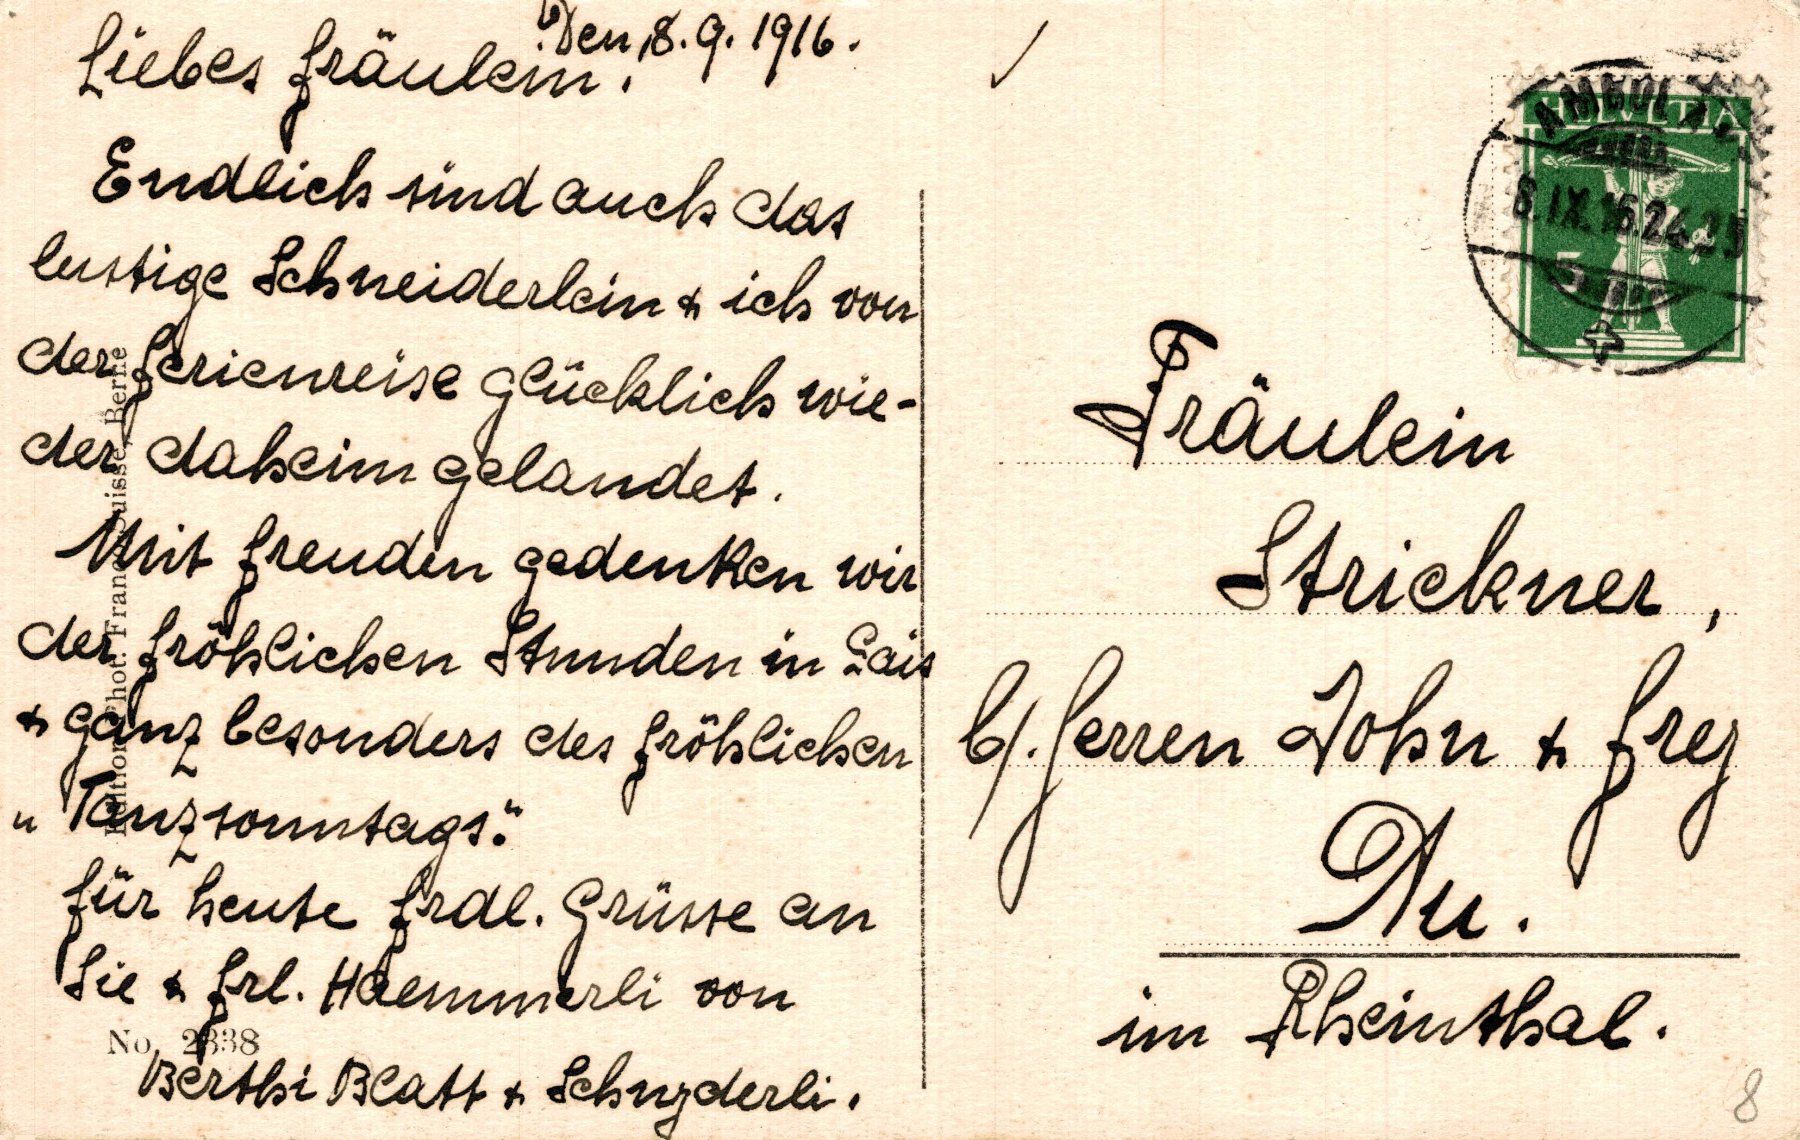 Den 8.9.1916.
Liebes Fräulein!
Endlich sind auch das
lustige Schneiderlein & ich von
der Ferienreise glücklich wie-
der daheim gelandet.
Mit Freuden gedenken wir
der fröhlichen Stunden in Gais
& ganz besonders des fröhlichen
"Tanzsonntags".
Für heute frdl. Grüsse an
Sie & Frl. Haemmerli von
Berthi Blatt & Schnyderli.
Edition Phot. Franco-Suisse, Berne
No. 2338
HELVETIA
5
AMBULANT
8.IX.16.24
Fräulein
Strickner,
b/. Herren John & Frey
Au.
im Rheinthal.
8